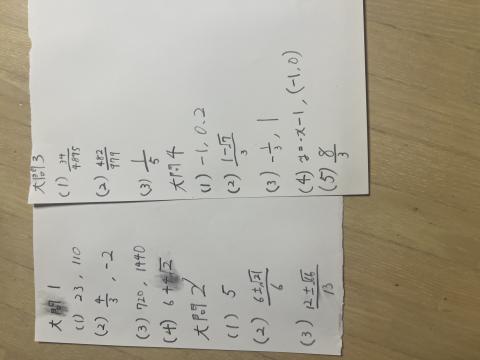 大問 1
(1) 23, 110
(2) 4/3, -2
(3) 720, 1440
(4) 6+4√2
大問 2
(1) 5
(2) (6±√21)/6
(3) 13
大問 3
(1) 34/4895
(2) 482/979
(3) 1/5
大問 4
(1) -1, 0.2
(2) (1-√7)/3
(3) -1/3, 1
(4) y=-x-1, (-1,0)
(5) 8/3